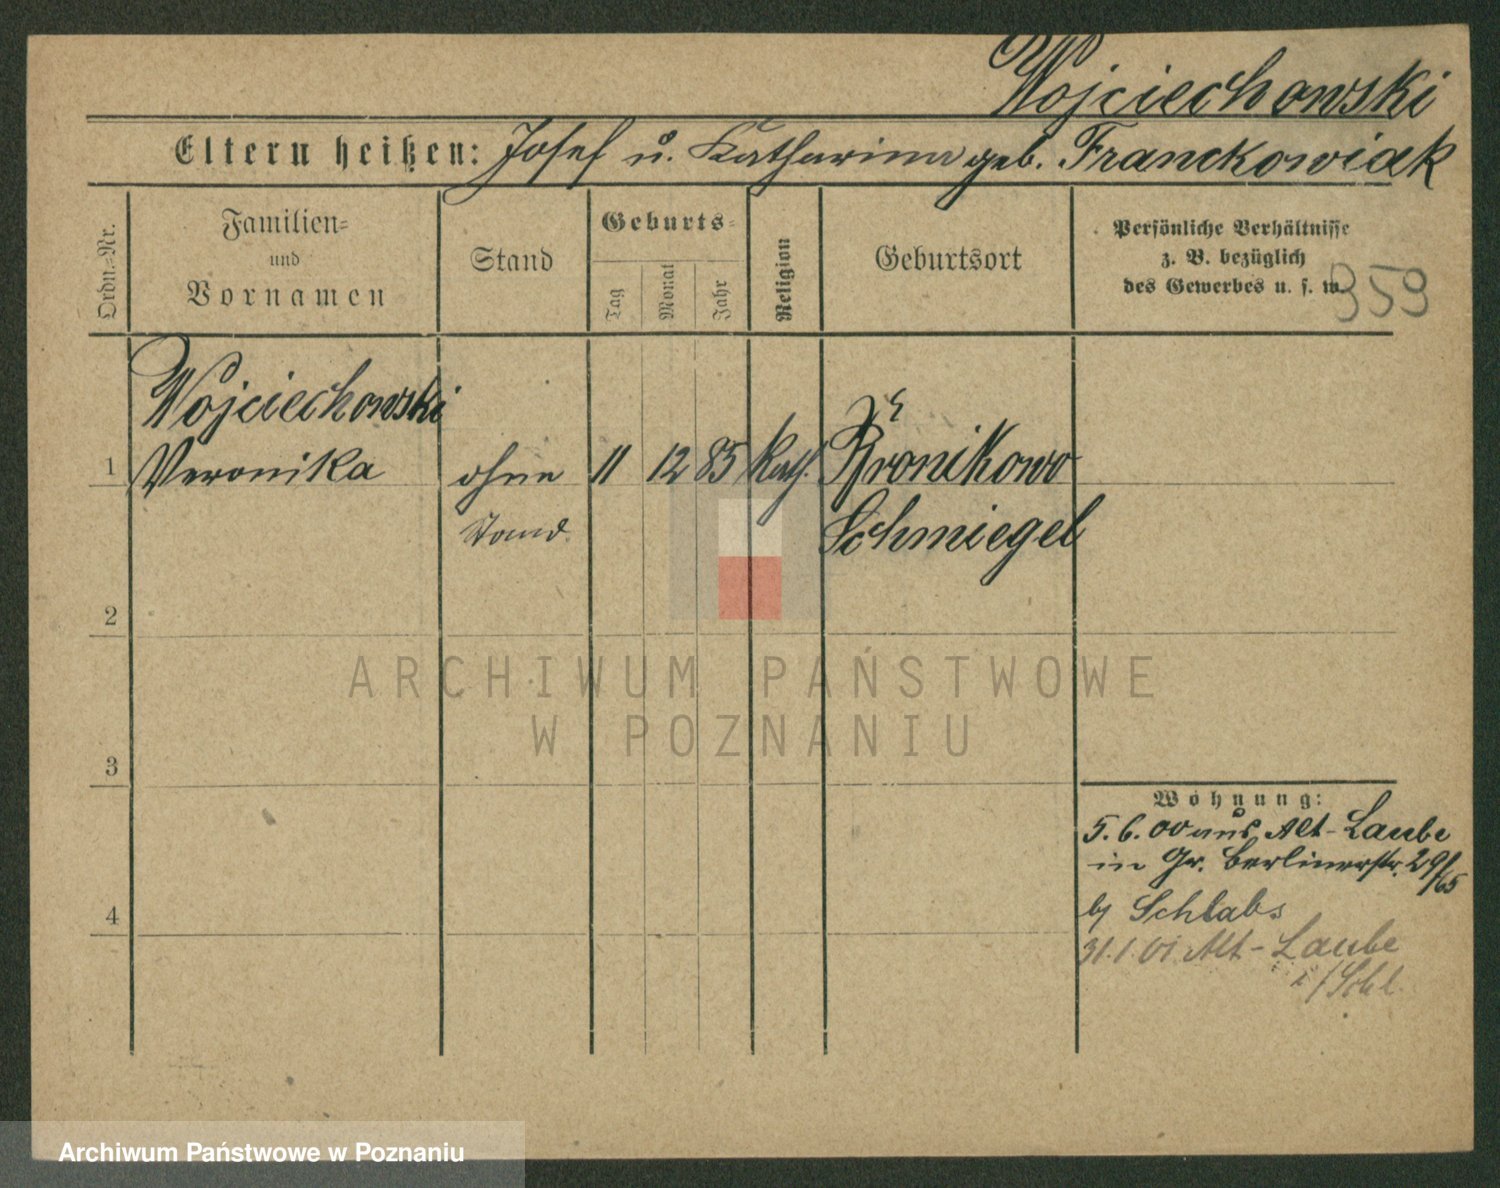 Wojciechowski
Eltern heißen: Josef u. Katharina geb. Franckowiak
Ordn.-Nr.
Familien- und Vornamen
Stand
Geburts-
Tag
Monat
Jahr
Religion
Geburtsort
Persönliche Verhältnisse
z. B. bezüglich
des Gewerbes u. s. w.
359
Wojciechowski
1 Veronika ohne 11 12 85 Kath.
Stand. Schmiegel
2
ARCHIWUM PAŃSTWOWE
W POZNANIU
3
Wohnung:
5.6.00 aus Alt-Laube
in Gr. Berlinerstr. 29/65
4
31.1.01 Alt-Laube
Archiwum Państwowe w Poznaniu